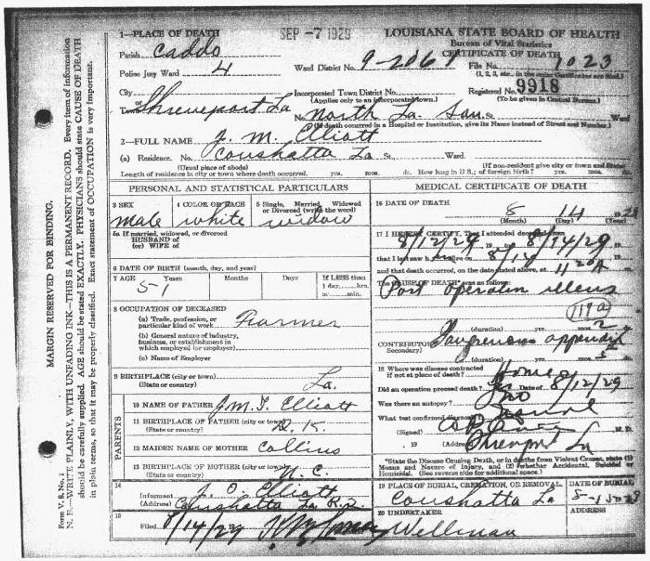 SEP -7 1929
1—PLACE OF DEATH
LOUISIANA STATE BOARD OF HEALTH
Bureau of Vital Statistics
CERTIFICATE OF DEATH
Parish Caddo
Police Jury Ward 4
Ward District No.
File No. 1023
City
Incorporated Town District No.
(Applies only to an incorporated town.)
Registered No. 9918
(To be given in Central Bureau.)
Shreveport La No. North La. San. St. Ward
(If death occurred in a Hospital or Institution, give its Name instead of Street and Number.)
2—FULL NAME J. M. Elliott
(a) Residence. No. Coushatta La St., Ward.
(Usual place of abode)
(If non-resident give city or town and State)
Length of residence in city or town where death occurred. yrs. mos. ds. How long in U.S.; of foreign birth? yrs. mos. ds.
PERSONAL AND STATISTICAL PARTICULARS
3 SEX
male
4 COLOR OR RACE
white
5 Single, Married, Widowed
or Divorced (write the word)
widow
5a If married, widowed, or divorced
HUSBAND of
(or) WIFE of
6 DATE OF BIRTH (month, day, and year)
7 AGE 51
Months
Days
If LESS than
1 day, hrs.
or min.
8 OCCUPATION OF DECEASED
(a) Trade, profession, or
particular kind of work Farmer
(b) General nature of industry,
business, or establishment in
which employed (or employer)
(c) Name of Employer
9 BIRTHPLACE (city or town)
(State or country) La.
PARENTS
10 NAME OF FATHER J.M.T. Elliott
11 BIRTHPLACE OF FATHER (city or town)
(State or country)
12 MAIDEN NAME OF MOTHER Collins
13 BIRTHPLACE OF MOTHER (city or town)
(State or country)
14
Informant J. O. Elliott
(Address) Coushatta La R.
15
Filed 8/14/29
MEDICAL CERTIFICATE OF DEATH
16 DATE OF DEATH 8 14
(Month) (Day) (Year)
17 I HEREBY CERTIFY, That I attended deceased from
8/12/29 8/14/29
that I last saw h alive on 8/14
and that death occurred, on the date stated above, at
The CAUSE OF DEATH* was as follows:
Post operative
(duration) yrs. mos. 2
CONTRIBUTORY Gangrenous
(Secondary)
(duration) yrs. mos.
18 Where was disease contracted
if not at place of death? Home
Did an operation precede death? Yes Date of 8/12/29
Was there an autopsy? No
What test confirmed diagnosis?
(Signed) M.D.
, 19 (Address) Shreveport La
*State the Disease Causing Death, or in deaths from Violent Causes, state (1)
Means and Nature of Injury, and (2) whether Accidental, Suicidal or
Homicidal.
19 PLACE OF BURIAL, CREMATION, OR REMOVAL
Coushatta La
DATE OF BURIAL
20 UNDERTAKER
Wellman
ADDRESS
MARGIN RESERVED FOR BINDING.
Form V. S. No. 1
N. B.—WRITE PLAINLY, WITH UNFADING INK—THIS IS A PERMANENT RECORD. Every item of information
should be carefully supplied. AGE should be stated EXACTLY. PHYSICIANS should state CAUSE OF DEATH
in plain terms, so that it may be properly classified. Exact statement of OCCUPATION is very important.